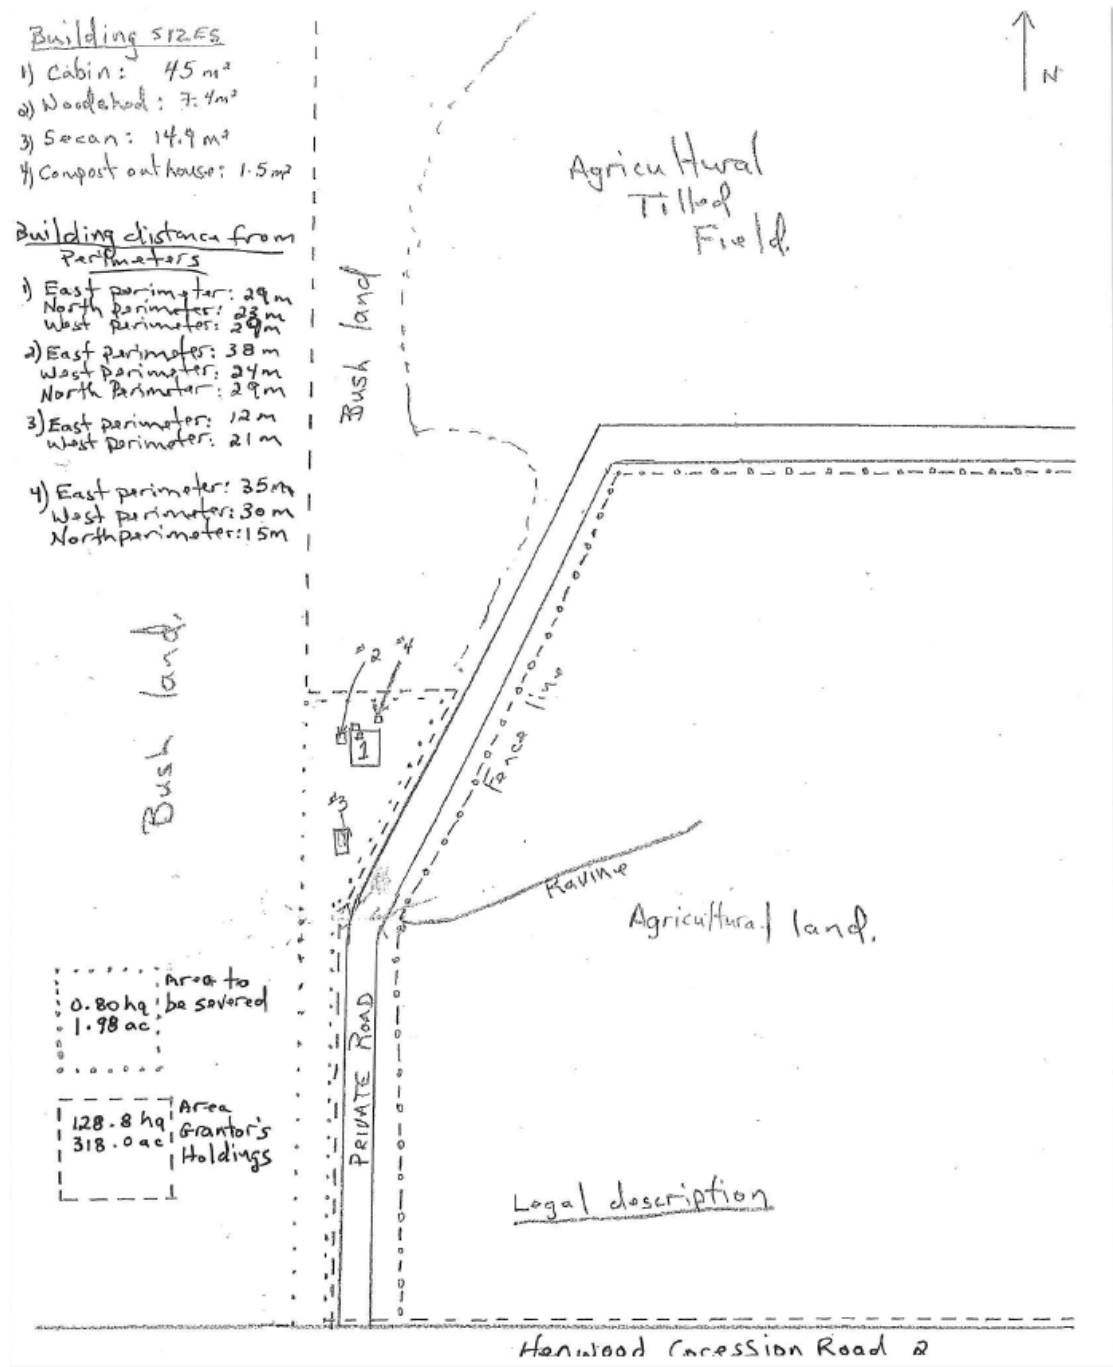 Building SIZES
1) Cabin: 45 m²
2) Woodshed: 7.4m²
3) Seacan: 14.9 m²
4) Compost outhouse: 1.5 m²
Building distance from
Perimeters
1) East perimeter: 29 m
North perimeter: 23 m
West perimeter: 29 m
2) East perimeter: 38 m
West perimeter: 24 m
North Perimeter: 29 m
3) East perimeter: 12 m
West perimeter: 21 m
4) East perimeter: 35 m
West perimeter: 30 m
North perimeter: 15m
N
Agricultural
Tilled
Field.
Bush land
Bush land.
#2
#4
1
#3
Fence line
Ravine
Agricultural land.
Area to
be severed
0.80 ha
1.98 ac
Area
Grantor's
Holdings
128.8 ha
318.0 ac
PRIVATE ROAD
Legal description
Henwood Concession Road 2